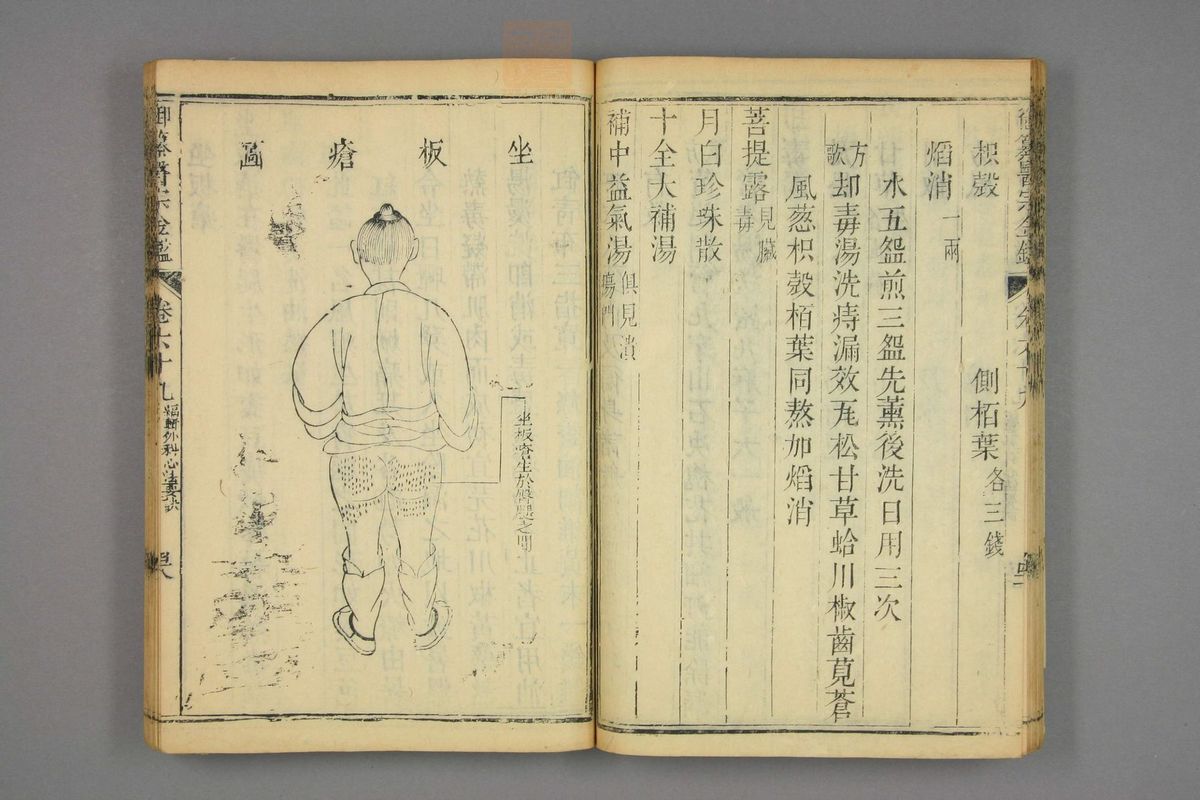 枳殼 側栢葉各三錢
焰消一兩
水五盌煎三盌先薰後洗日用三次
方歌 却毒湯洗痔漏效瓦松甘草蛤川椒齒莧蒼
風葱枳殼栢葉同熬加焰消
菩提露見臟毒
月白珍珠散
十全大補湯
補中益氣湯俱見潰瘍門
坐板瘡圖
坐板瘡生於臀腿之間
御纂醫宗金鑑 卷六十九 編輯外科心法要訣